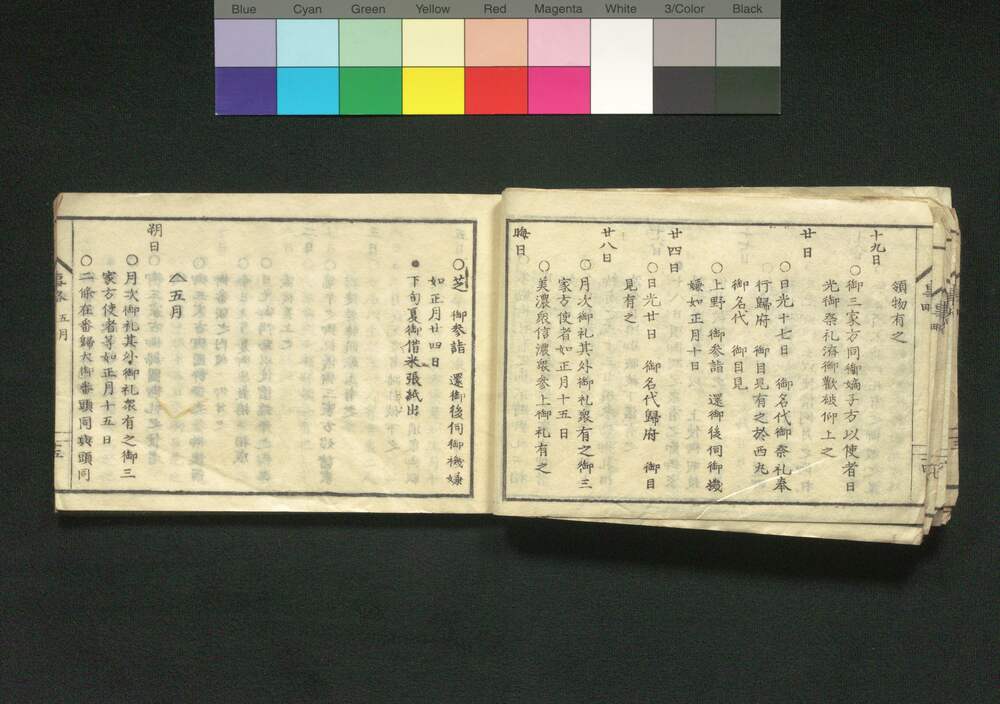 Blue Cyan Green Yellow Red Magenta White 3/Color Black
領物有之
十九日
○御三家方同御嫡子方以使者日
光御祭礼済御歡被仰上之
廿日
○日光十七日 御名代御祭礼奉
行歸府 御目見有之於西丸
御名代 御目見
○上野 御参詣 還御後伺御機
嫌如正月十日
廿四日
○日光廿日 御名代歸府 御目
見有之
廿八日
○月次御礼其外御礼衆有之御三
家方使者如正月十五日
○美濃衆信濃衆参上御礼有之
晦日
○芝 御参詣 還御後伺御機嫌
如正月廿四日
●下旬夏御借米張紙出
五月
朔日
○月次御礼其外御礼衆有之御三
家方使者等如正月十五日
○二條在番歸大御番頭同衆頭同
五月